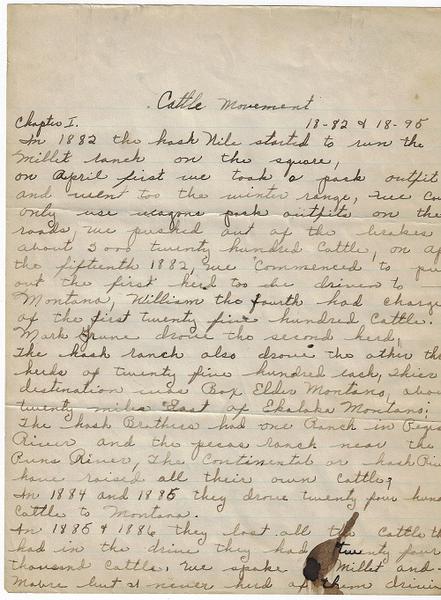 Cattle Movement
Chapter I. 18-82 & 18-95
In 1882 the hask Nile started to run the
Millet ranch on the square,
on April first we took a pack outfit
and went too the winter range, we
only use wagons pack outfits on the
roads, we pushed out of the brakes
about 5000 twenty hundred Cattle, on
the fifteenth 1882, we Commenced to
out the first herd too be driven to
Montana, William the fourth had charge
of the first twenty five hundred Cattle.
Mark drove the second herd,
The hask ranch also drove the other
herds of twenty five hundred each,
destination was Box Elder Montana,
twenty miles East of Ekalaka Montana;
The hash Brothers had one Ranch in
River and the pecas ranch near the
River, The Continental or hash
have raised all their own Cattle,
In 1884 and 1885 they drove twenty four
Cattle to Montana.
In 1885 & 1886 they lost all the Cattle
had in the drive they had twenty four
thousand Cattle, we spoke Millet and
Moore but I never herd of them